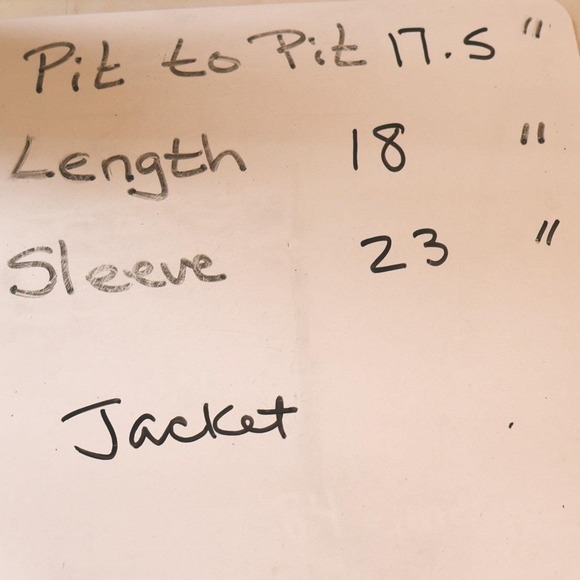 Pit to Pit 17.5 "
Length 18 "
Sleeve 23 "
Jacket